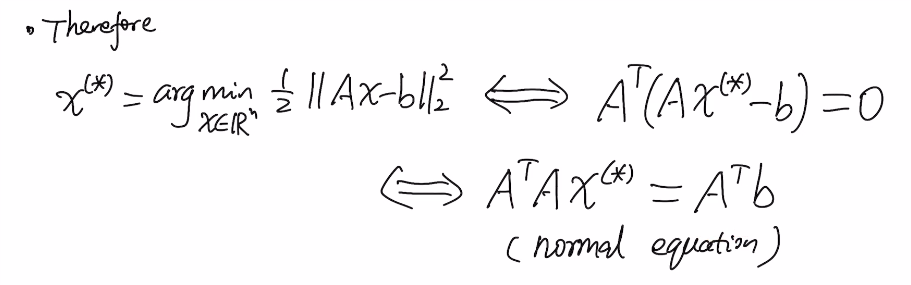 • Therefore
x^(*) = arg min_{x∈ℝⁿ} ½ ||Ax-b||₂² ⟺ Aᵀ(Ax^(*)-b) = 0
⟺ AᵀAx^(*) = Aᵀb
(normal equation)